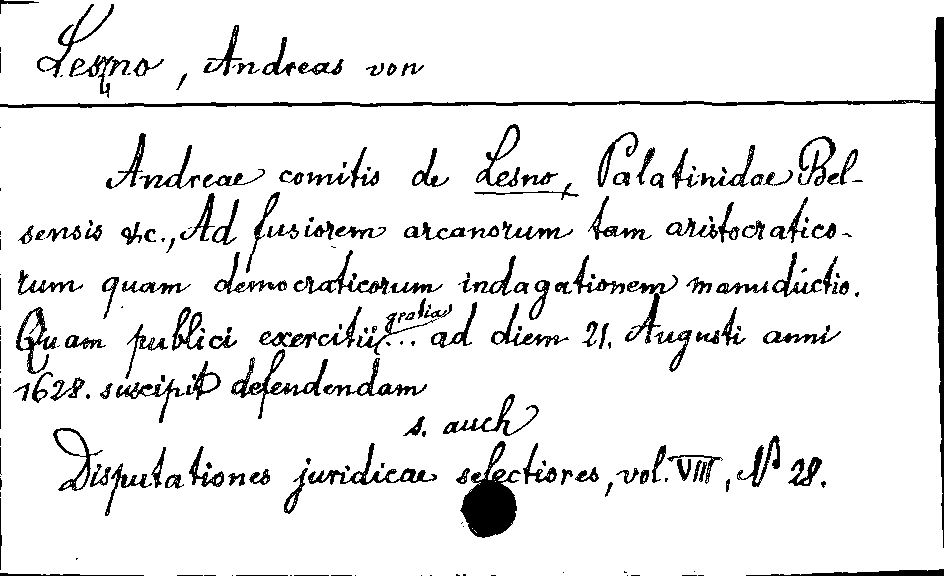 Leszno, Andreas von
Andreae comitis de Lesno, Palatinidae Bel-
sensis &c., Ad fusiorem arcanorum tam aristocratico-
rum quam democraticorum indagationem manuductio.
Quam publici exercitii gratia ... ad diem 21. Augusti anni
1628. suscipit defendendam
s. auch
Disputationes juridicae selectiores, vol. VIII, No 28.